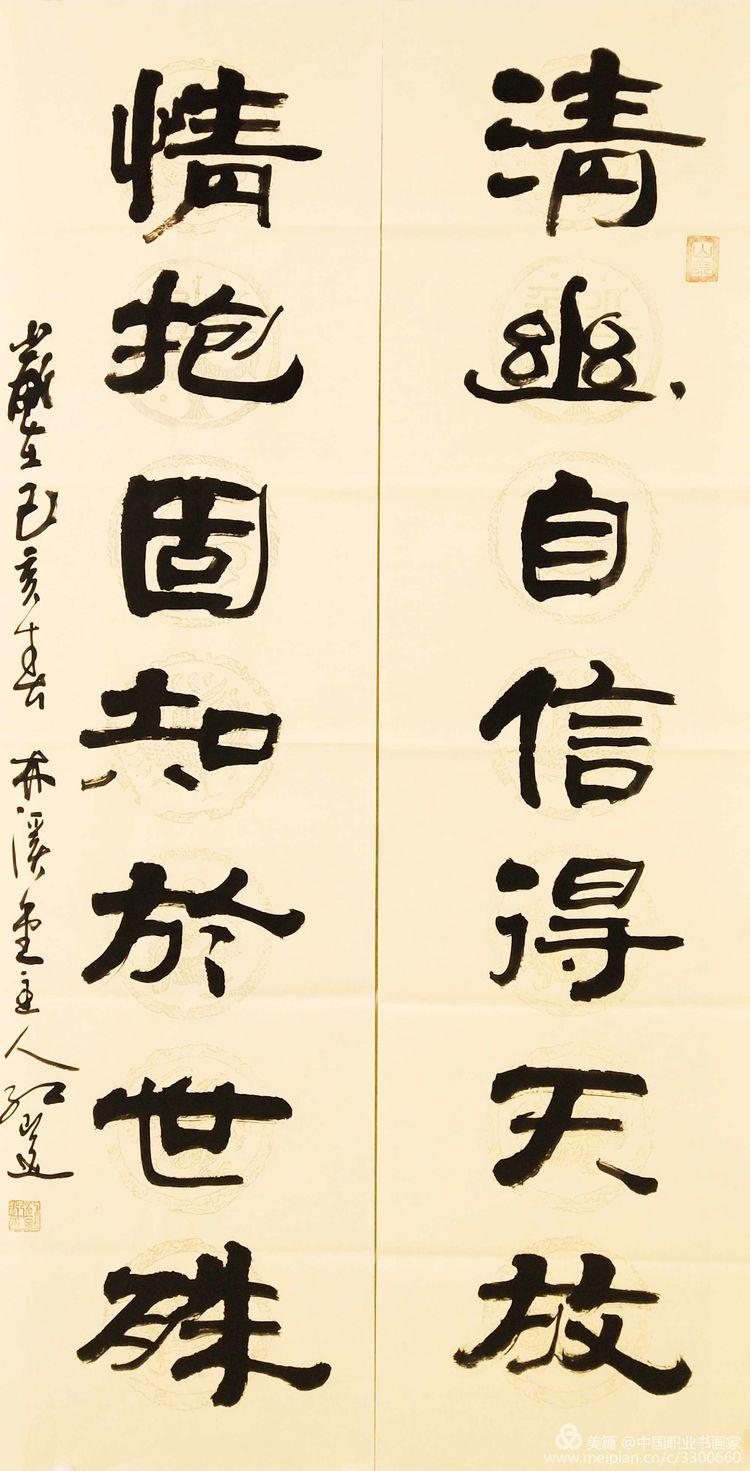 清幽自信得天放
情抱固知於世殊
歲在己亥春 林溪堂主人
美篇 @中国职业书画家
www.meipian.cn/c/3300660